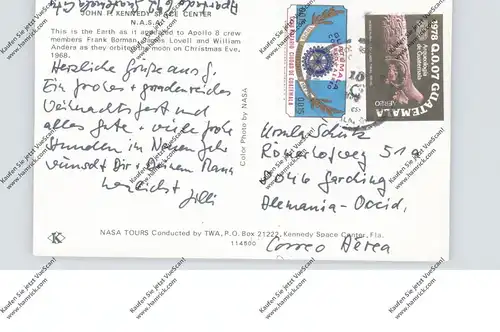 JOHN F. KENNEDY SPACE CENTER
N.A.S.A.
This is the Earth as it appeared to Apollo 8 crew
members Frank Borman, James Lovell and William
Anders as they orbited the Moon on Christmas Eve,
1968.
Herzliche Grüße aus G.
Ein großes + gnadenreiches
Weihnachtsfest und
alles Gute + viele frohe
Stunden im Neuen Jahr
wünscht Dir + Deinem Mann
herzlichst
Color Photo by NASA
GUATEMALA
CIUDAD DE GUATEMALA
Q0.15
1978 Q.0.07 GUATEMALA
AEREO
Arqueologia
de Guatemala
Ursula Schütz
Römerhofweg 51a
8046 Garching
Alemania-Occid.
Correo Aérea
K
NASA TOURS Conducted by TWA, P.O. Box 21222, Kennedy Space Center, Fla.
114800
Kaufen Sie jetzt mit VueScan!
www.hamrick.com